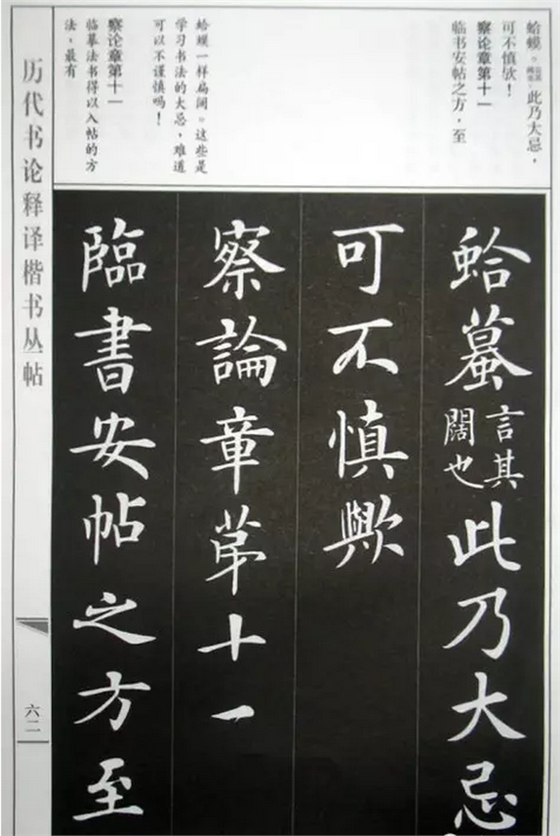 蛤蟆。此乃大忌，
可不慎欤！
察论章第十一
临书安帖之方，至
蛤蟆一样扁阔。这些是
学习书法的大忌，难道
可以不谨慎吗！
察论章第十一
临摹法书得以入帖的方
法，最有
蛤蟇言其闊也此乃大忌
可不慎歟
察論章苐十一
臨書安帖之方至
历代书论释译楷书丛帖
六二